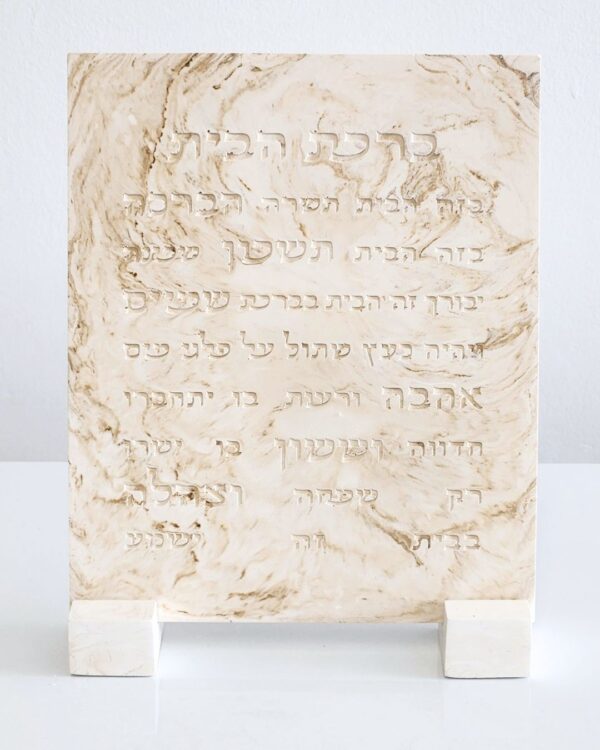 ברכת הבית
בזה הבית תשרה הברכה
בזה הבית תשכון שכינה
יבורך זה הבית בברכת שמים
והיה כעץ שתול על פלגי מים
אהבה ורעות בו יתחברו
חדווה וששון בו ישרו
רק שמחה וצהלה
בבית זה ישמע